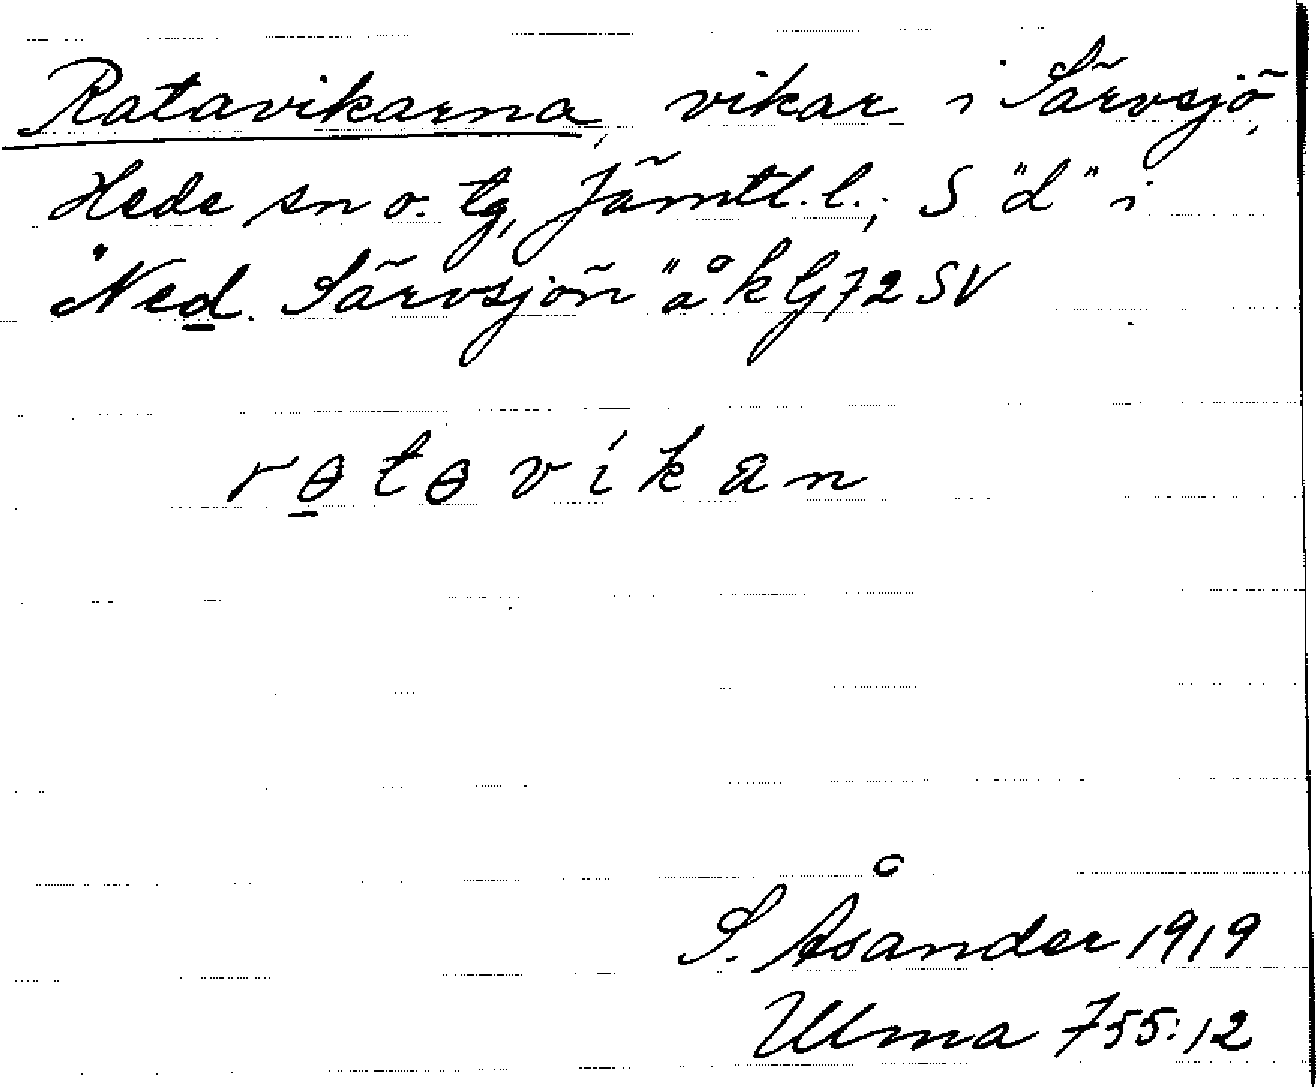 Ratavikarna, vikar i Särvsjö,
Hede sn o. tg, Jämtl. l.; S "d" i
"Ned. Särvsjön" å k G 72 SV
rɵtɵvikan
S. Åsander 1919
Ulma 755:12